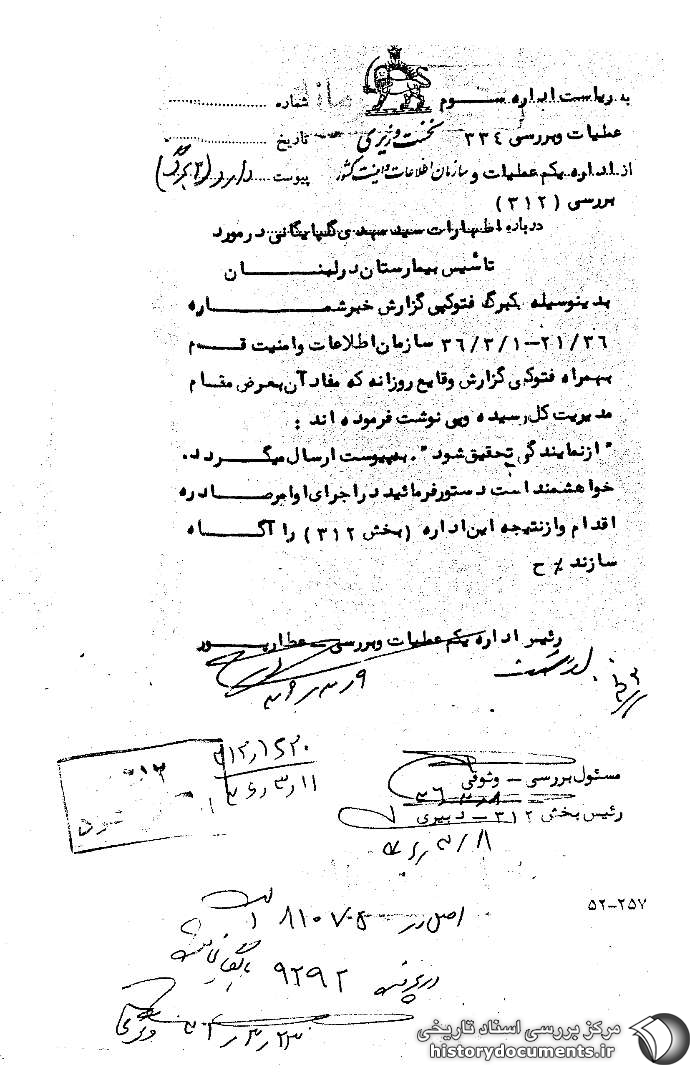 به ریاست اداره سوم شماره
عملیات و بررسی ۳۳٤ نخست وزیری تاریخ
از اداره یکم عملیات و سازمان اطلاعات و امنیت کشور پیوست دارد (۲ برگ)
بررسی (۳۱۲)
درباره اظهارات سید مهدی گلپایگانی در مورد
تاسیس بیمارستان در لبنان
بدینوسیله یکبرگ فتوکپی گزارش خبر شماره
۲۱/۳۶-۳۶/۳/۱ سازمان اطلاعات و امنیت قم
بهمراه فتوکپی گزارش وقایع روزانه که مفاد آن بعرض مقام
مدیریت کل رسیده و پی نوشت فرموده اند :
"از نمایندگی تحقیق شود". بپیوست ارسال میگردد.
خواهشمند است دستور فرمائید در اجرای اوامر صادره
اقدام و از نتیجه این اداره (بخش ۳۱۲) را آگاه
سازند ٪ ح
رئیس اداره یکم عملیات و بررسی - عطارپور
۳۶/۳/۹
۳۱۲/۱۶۲۰
۳۶/۳/۱۱
مسئول بررسی - وثوقی
۳۶/۳/۸
رئیس بخش ۳۱۲ - دبیری
۳۶/۳/۸
۵۲-۲۵۷
اصل در ۸۱۰۷۰۵
در پرونده ۹۲۹۲
مرکز بررسی اسناد تاریخی
historydocuments.ir